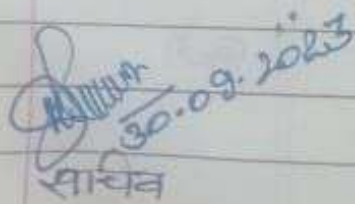 30.09.2023
सचिव